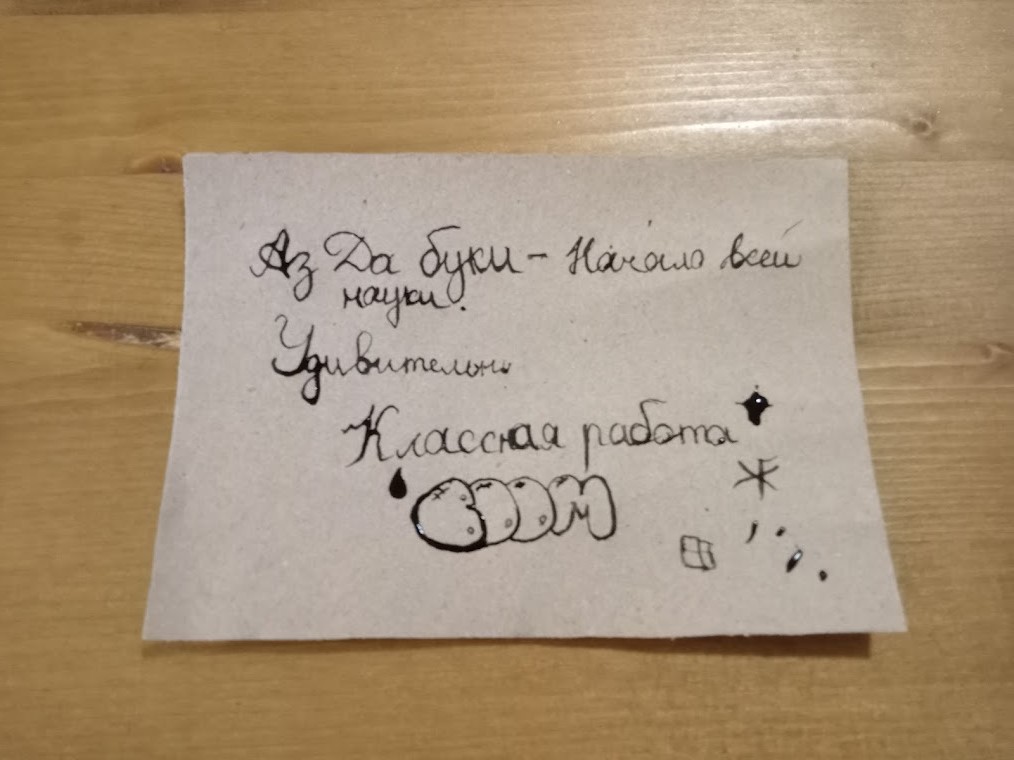 Аз Да буки - Начало всей
науки.
Удивительно
Классная работа
BOOM